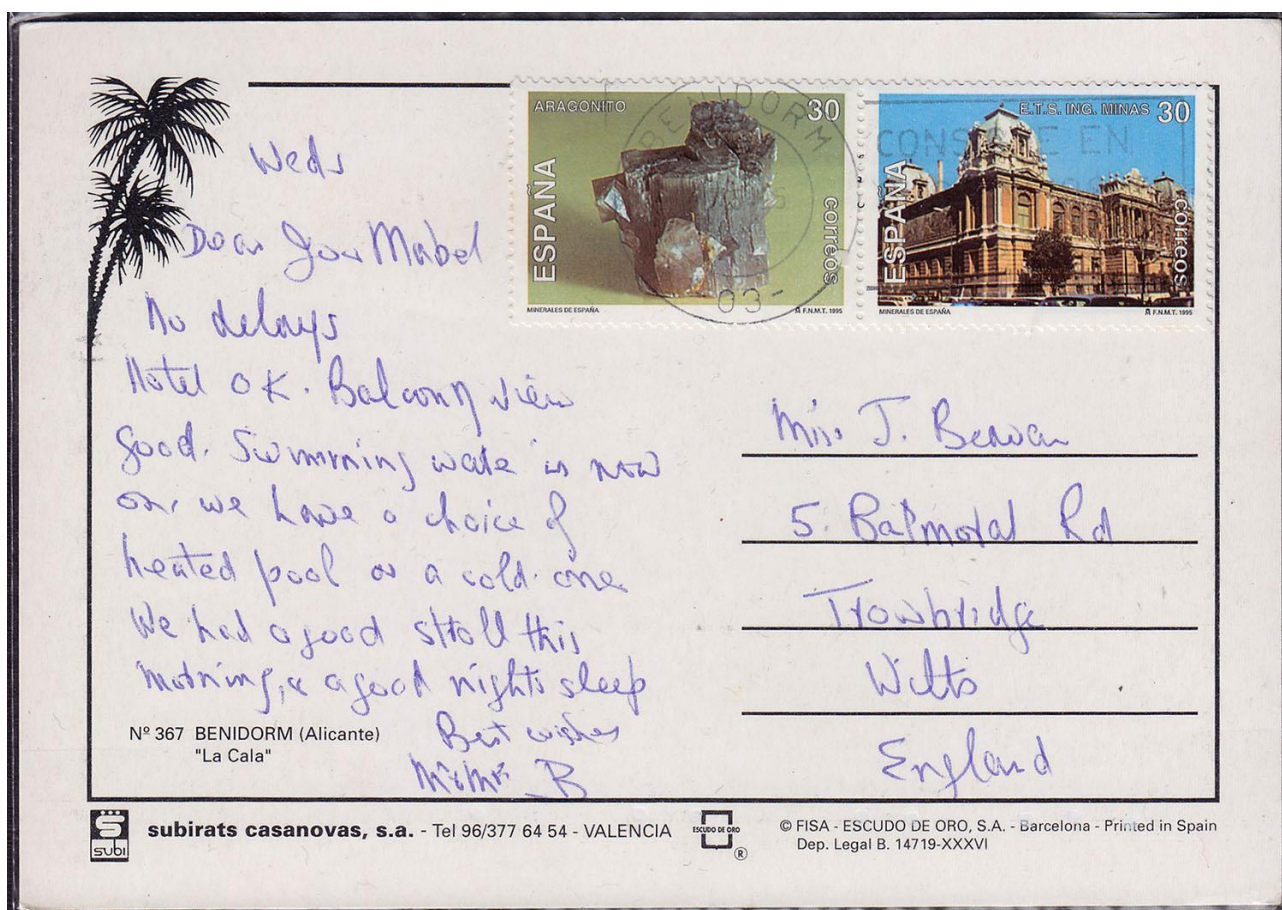 Weds
Dear Joy Mabel
No delays
Hotel OK. Balcony view
good. Swimming wate is now
on, we have a choice of
heated pool or a cold one
We had a good stroll this
morning, & a good nights sleep
Best wishes
B
Nº 367 BENIDORM (Alicante)
"La Cala"
ARAGONITO 30
ESPAÑA
correos
MINERALES DE ESPAÑA
F.N.M.T. 1995
E.T.S. ING. MINAS 30
ESPAÑA
correos
MINERALES DE ESPAÑA
F.N.M.T. 1995
BENIDORM
03-
EN
Miss J. Bewan
5. Balmoral Rd
Trowbridge
Wilts
England
SUBI
subirats casanovas, s.a. - Tel 96/377 64 54 - VALENCIA
ESCUDO DE ORO
®
© FISA - ESCUDO DE ORO, S.A. - Barcelona - Printed in Spain
Dep. Legal B. 14719-XXXVI